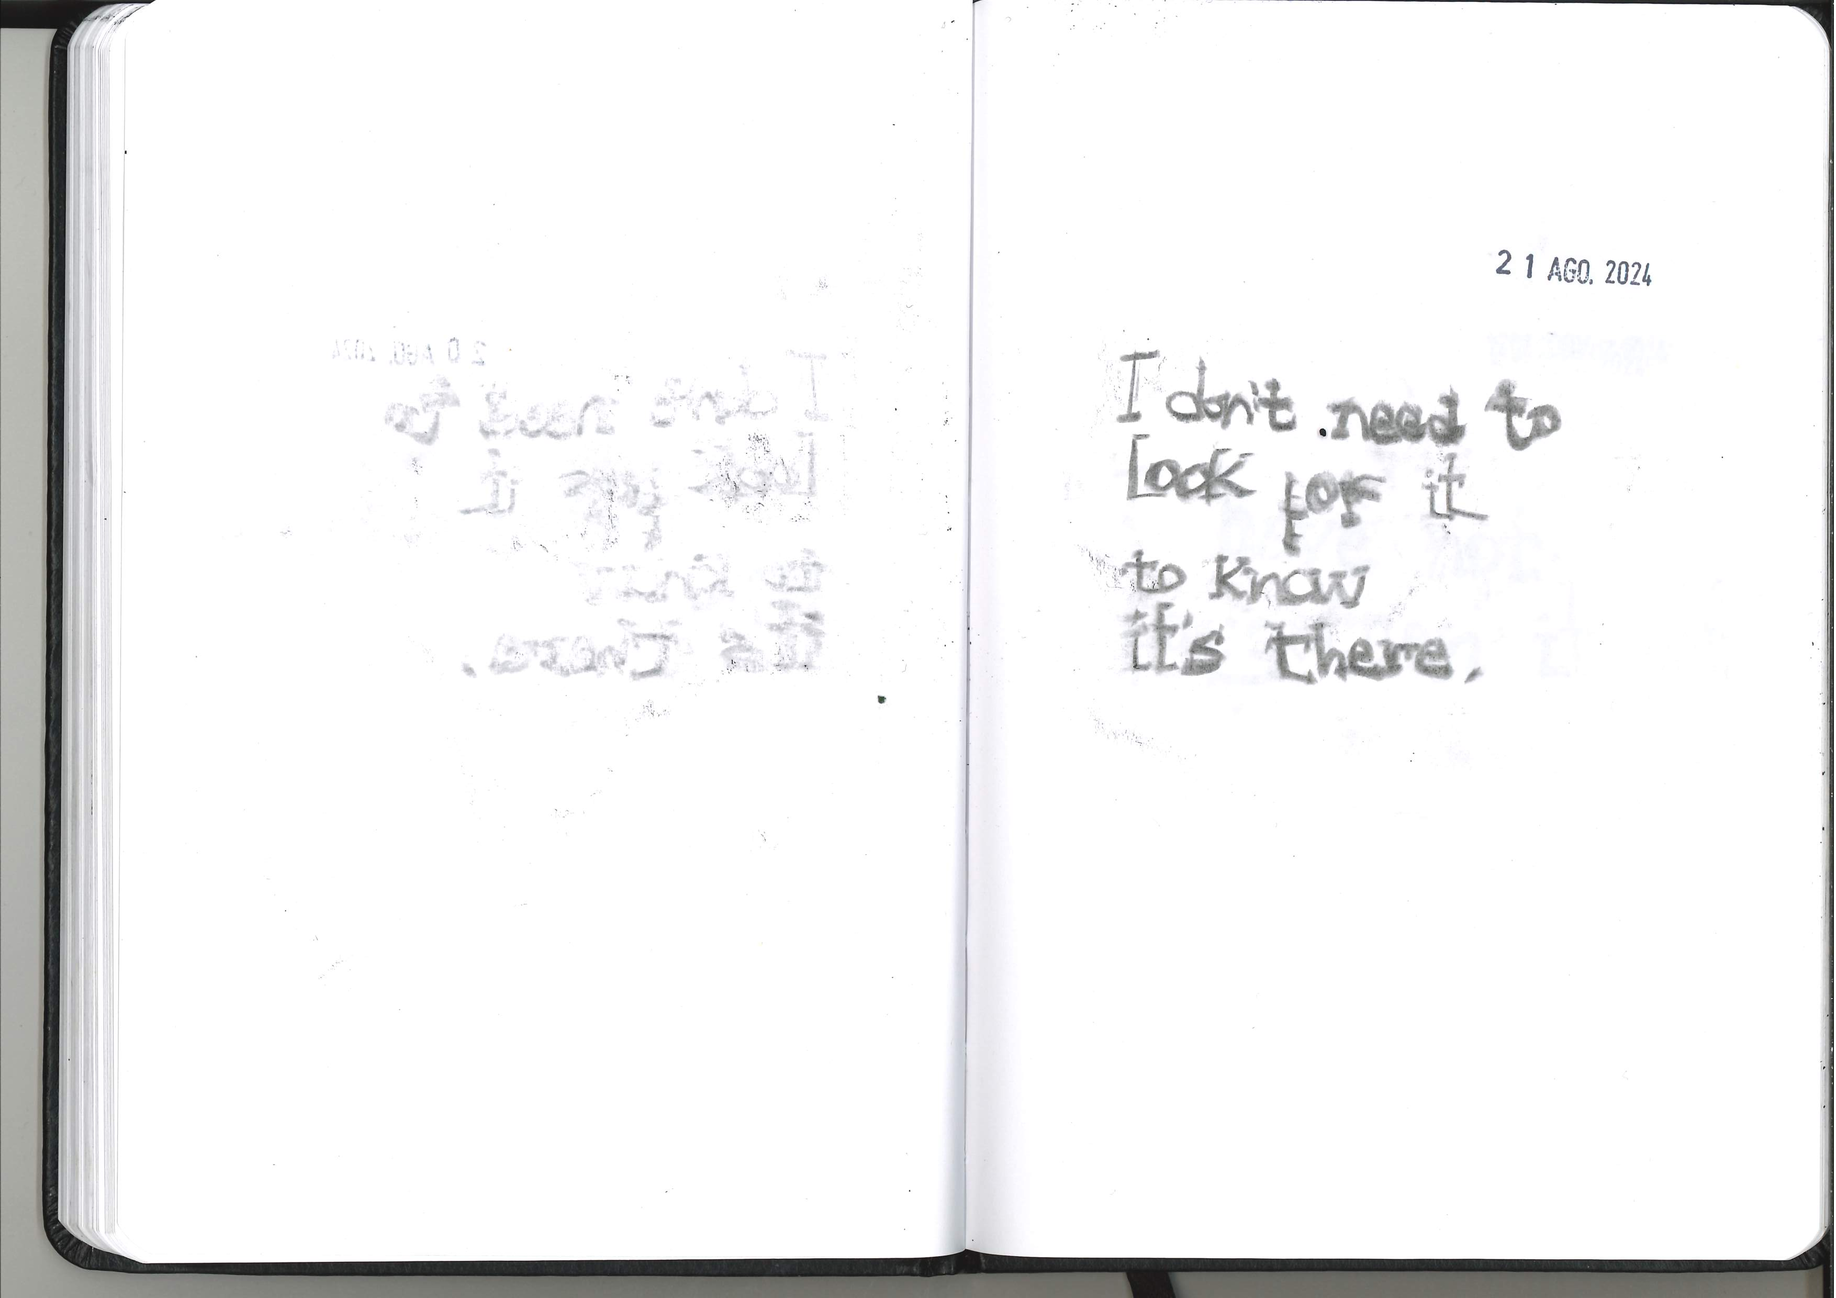 21 AGO. 2024
I don't need to
Look for it
to know
it's there.
20 AGO. 2024